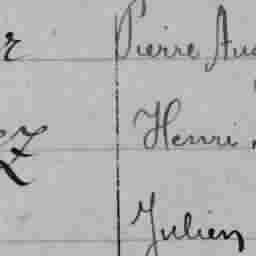 Pierre Au
Henri
Julien